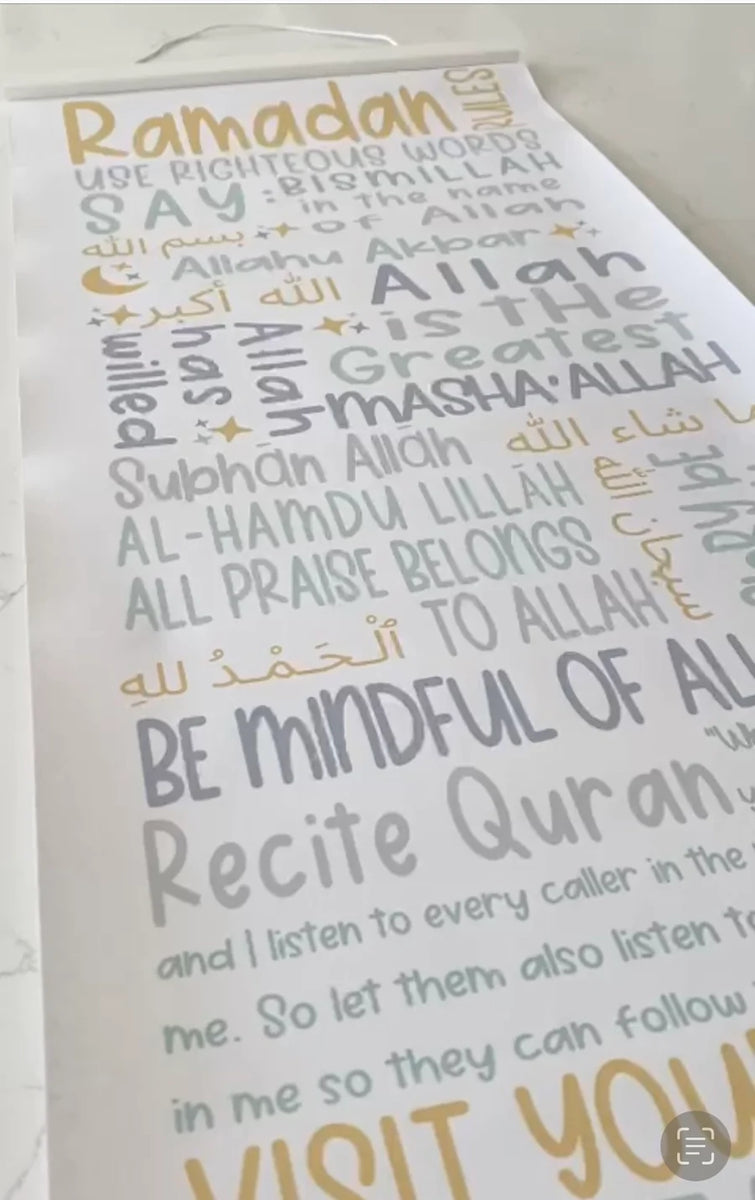 Ramadan RULES
USE RIGHTEOUS WORDS
SAY: BISMILLAH
in the name
بسم الله of Allah
Allahu Akbar
الله أكبر Allah
is THE
Greatest
Allah
has
willed
MASHA'ALLAH
Subhān Allāh ما شاء الله
AL-HAMDU LILLĀH
سبحان الله
ALL PRAISE BELONGS
TO ALLAH
ٱلْحَمْدُ للهِ
BE MINDFUL OF
Recite Quran
and I listen to every caller in the
me. So let them also listen
in me so they can follow
VISIT